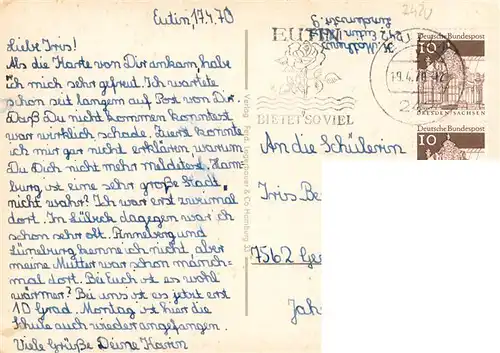 Eutin, 17.4.70
Liebe Iris!
Als die Karte von Dir ankam, habe
ich mich sehr gefreut. Ich wartete
schon seit langem auf Post von Dir.
Daß Du nicht kommen konntest
war wirklich schade. Zuerst konnte
ich mir gar nicht erklären, warum
Du Dich nicht mehr meldetest. Ham-
burg ist eine sehr große Stadt,
nicht wahr? Ich war erst zweimal
dort. In Lübeck dagegen war ich
schon sehr oft. Annaberg und
Lüneburg kenne ich nicht aber
meine Mutter war schon manch-
mal dort. Bei Euch ist es wohl
wärmer? Bei uns ist es jetzt erst
10 Grad. Montag ist hier die
Schule auch wieder angefangen.
Viele Grüße Deine Karin
EUTIN
BIETET SO VIEL
242 Eutin
Deutsche Bundespost
10
DRESDEN/SACHSEN
Deutsche Bundespost
10
An die Schülerin
Iris Be
7562 Ge
Jah